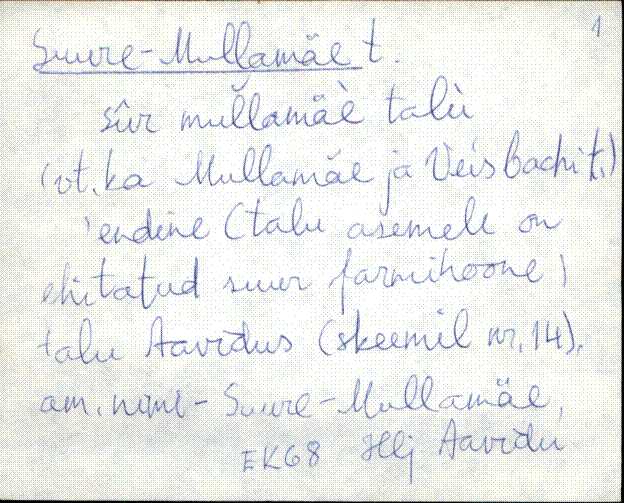 1
Suure-Mullamäe t.
sûr mul̆lamäè talù
(vt. ka Mullamäe ja Veisbachi t.)
'endine (talu asemele on
ehitatud suur farmihoone)
talu Aavidus (skeemil nr. 14).
am. nimi - Suure-Mullamäe,
EK68 Hlj Aavidu